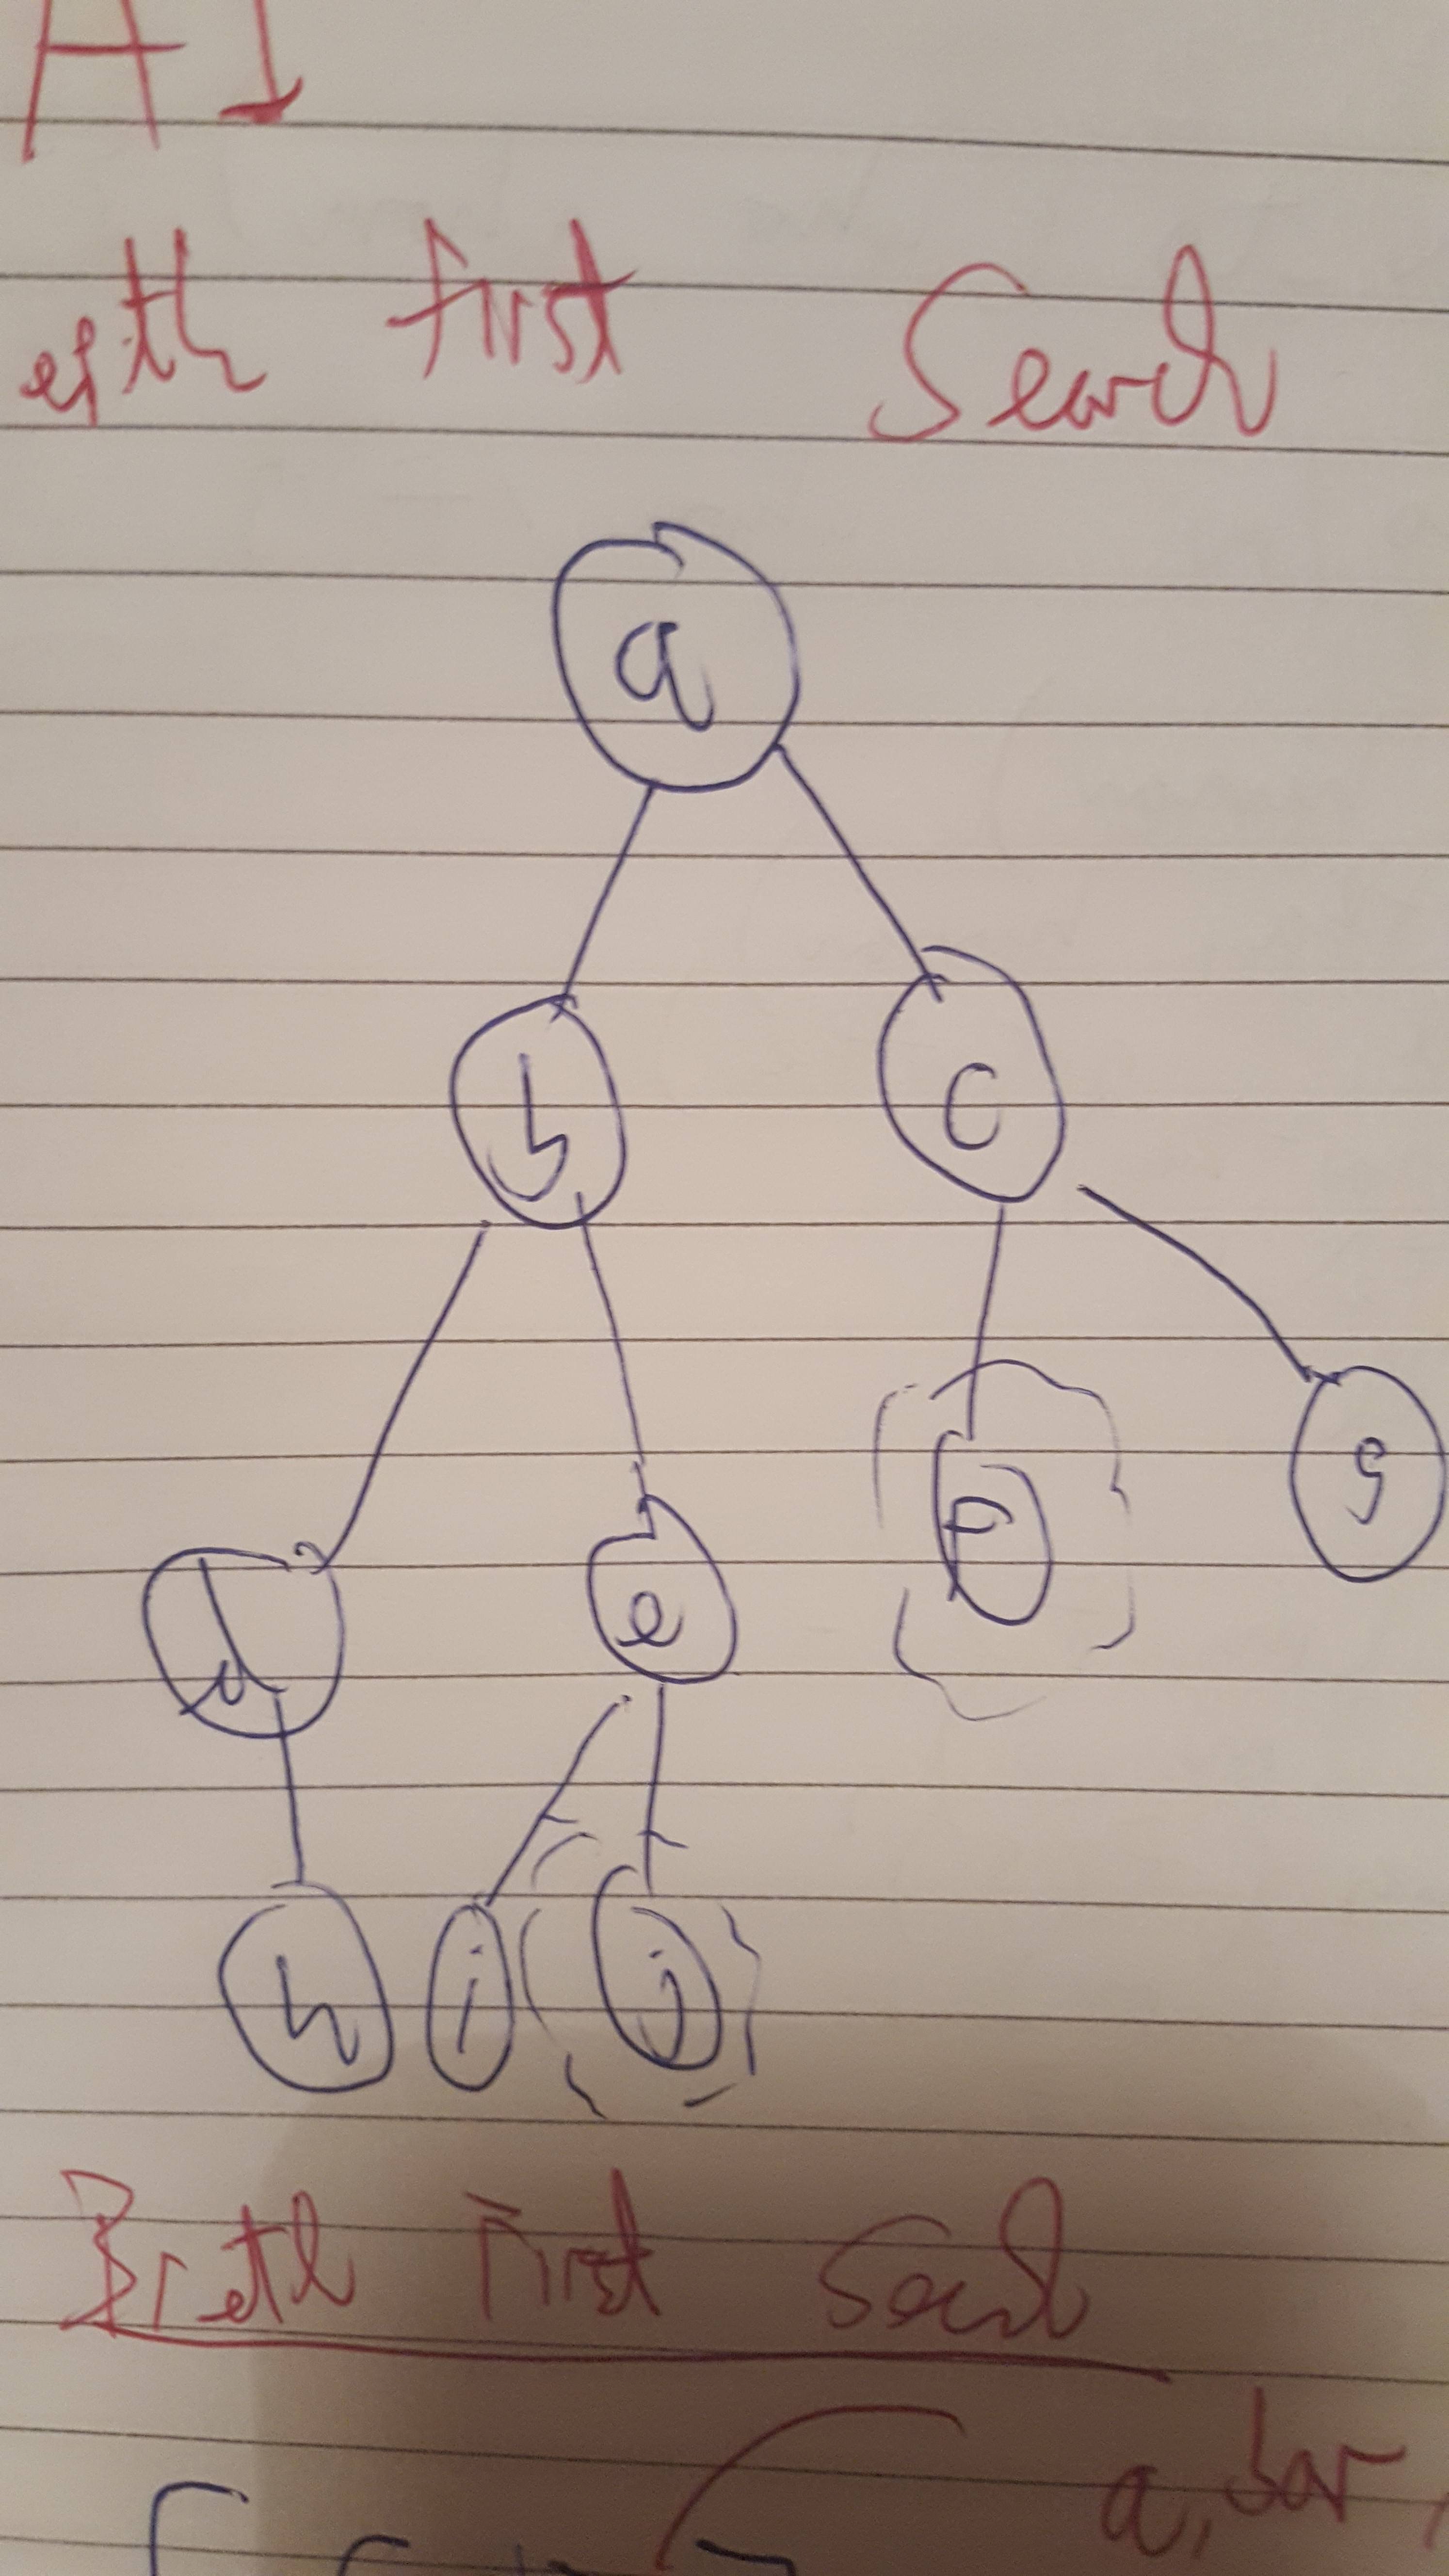 AI
epth first Search
a
b c
d e f g
h i j
Breth First Search
a, bar,